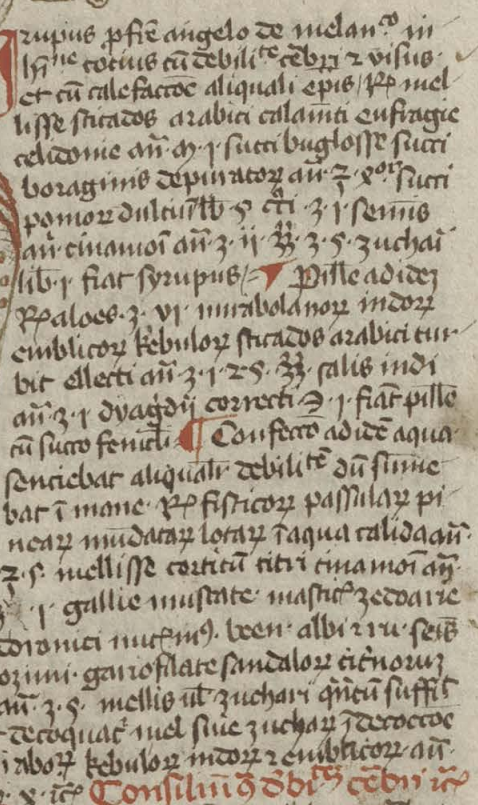 Irupus ꝓ fr̄e angelo de melan.co in
h̄ne tocius cū debilite c̄ebri ⁊ visus.
et cū calefactōe aliquali epīs / ꝶ mel-
lisse sticados arabici calamti eufragie
celidonie an̄. ɱ. ı. succi buglosse succi
boraginis depuratoꝝ an̄. ℥. succi
pomoꝝ dulciū lb̄. ʒ. ı. semīs
an̄. cinamoi an̄. ʒ. ıı. ʒ. s. zuchaī
lib̄. ı. fiat syrupus / ¶ Pille ad idez
ꝶ aloes. ʒ. vı. mirabolanoꝝ indoꝝ
emblicoꝝ kebuloꝝ sticados arabici tur-
bit ellecti an̄. ʒ. ı. ⁊ s. salis indi
an̄. ʒ. ı dyag̓dij correcti. ℈. ı. fiāt pille
cū succo feniclī ¶ Confectō ad idē aqua
senciebat aliqualr debilitē dū sume-
bat ī mane. ꝶ fisticoꝝ passulaꝝ pi-
neaꝝ mūdataꝝ lotaꝝ ī aqua calida an̄.
℥. s. mellisse corticū citri cinamoi an̄.
ı. gallie muscate. masticꝭ zedoarie
doronici been. albi ⁊ ru. seīs
ozimi. gariofilate sandaloꝝ cit̓noruꝫ
an̄. ʒ. s. mellis ul̄ zuchari qn̄tū sufficꝭ
decoquat̓ mel siue zuchaꝝ ī decoctōe
kebuloꝝ indoꝝ ⁊ emblicoꝝ an̄.
x. Consiliū c̄ebri